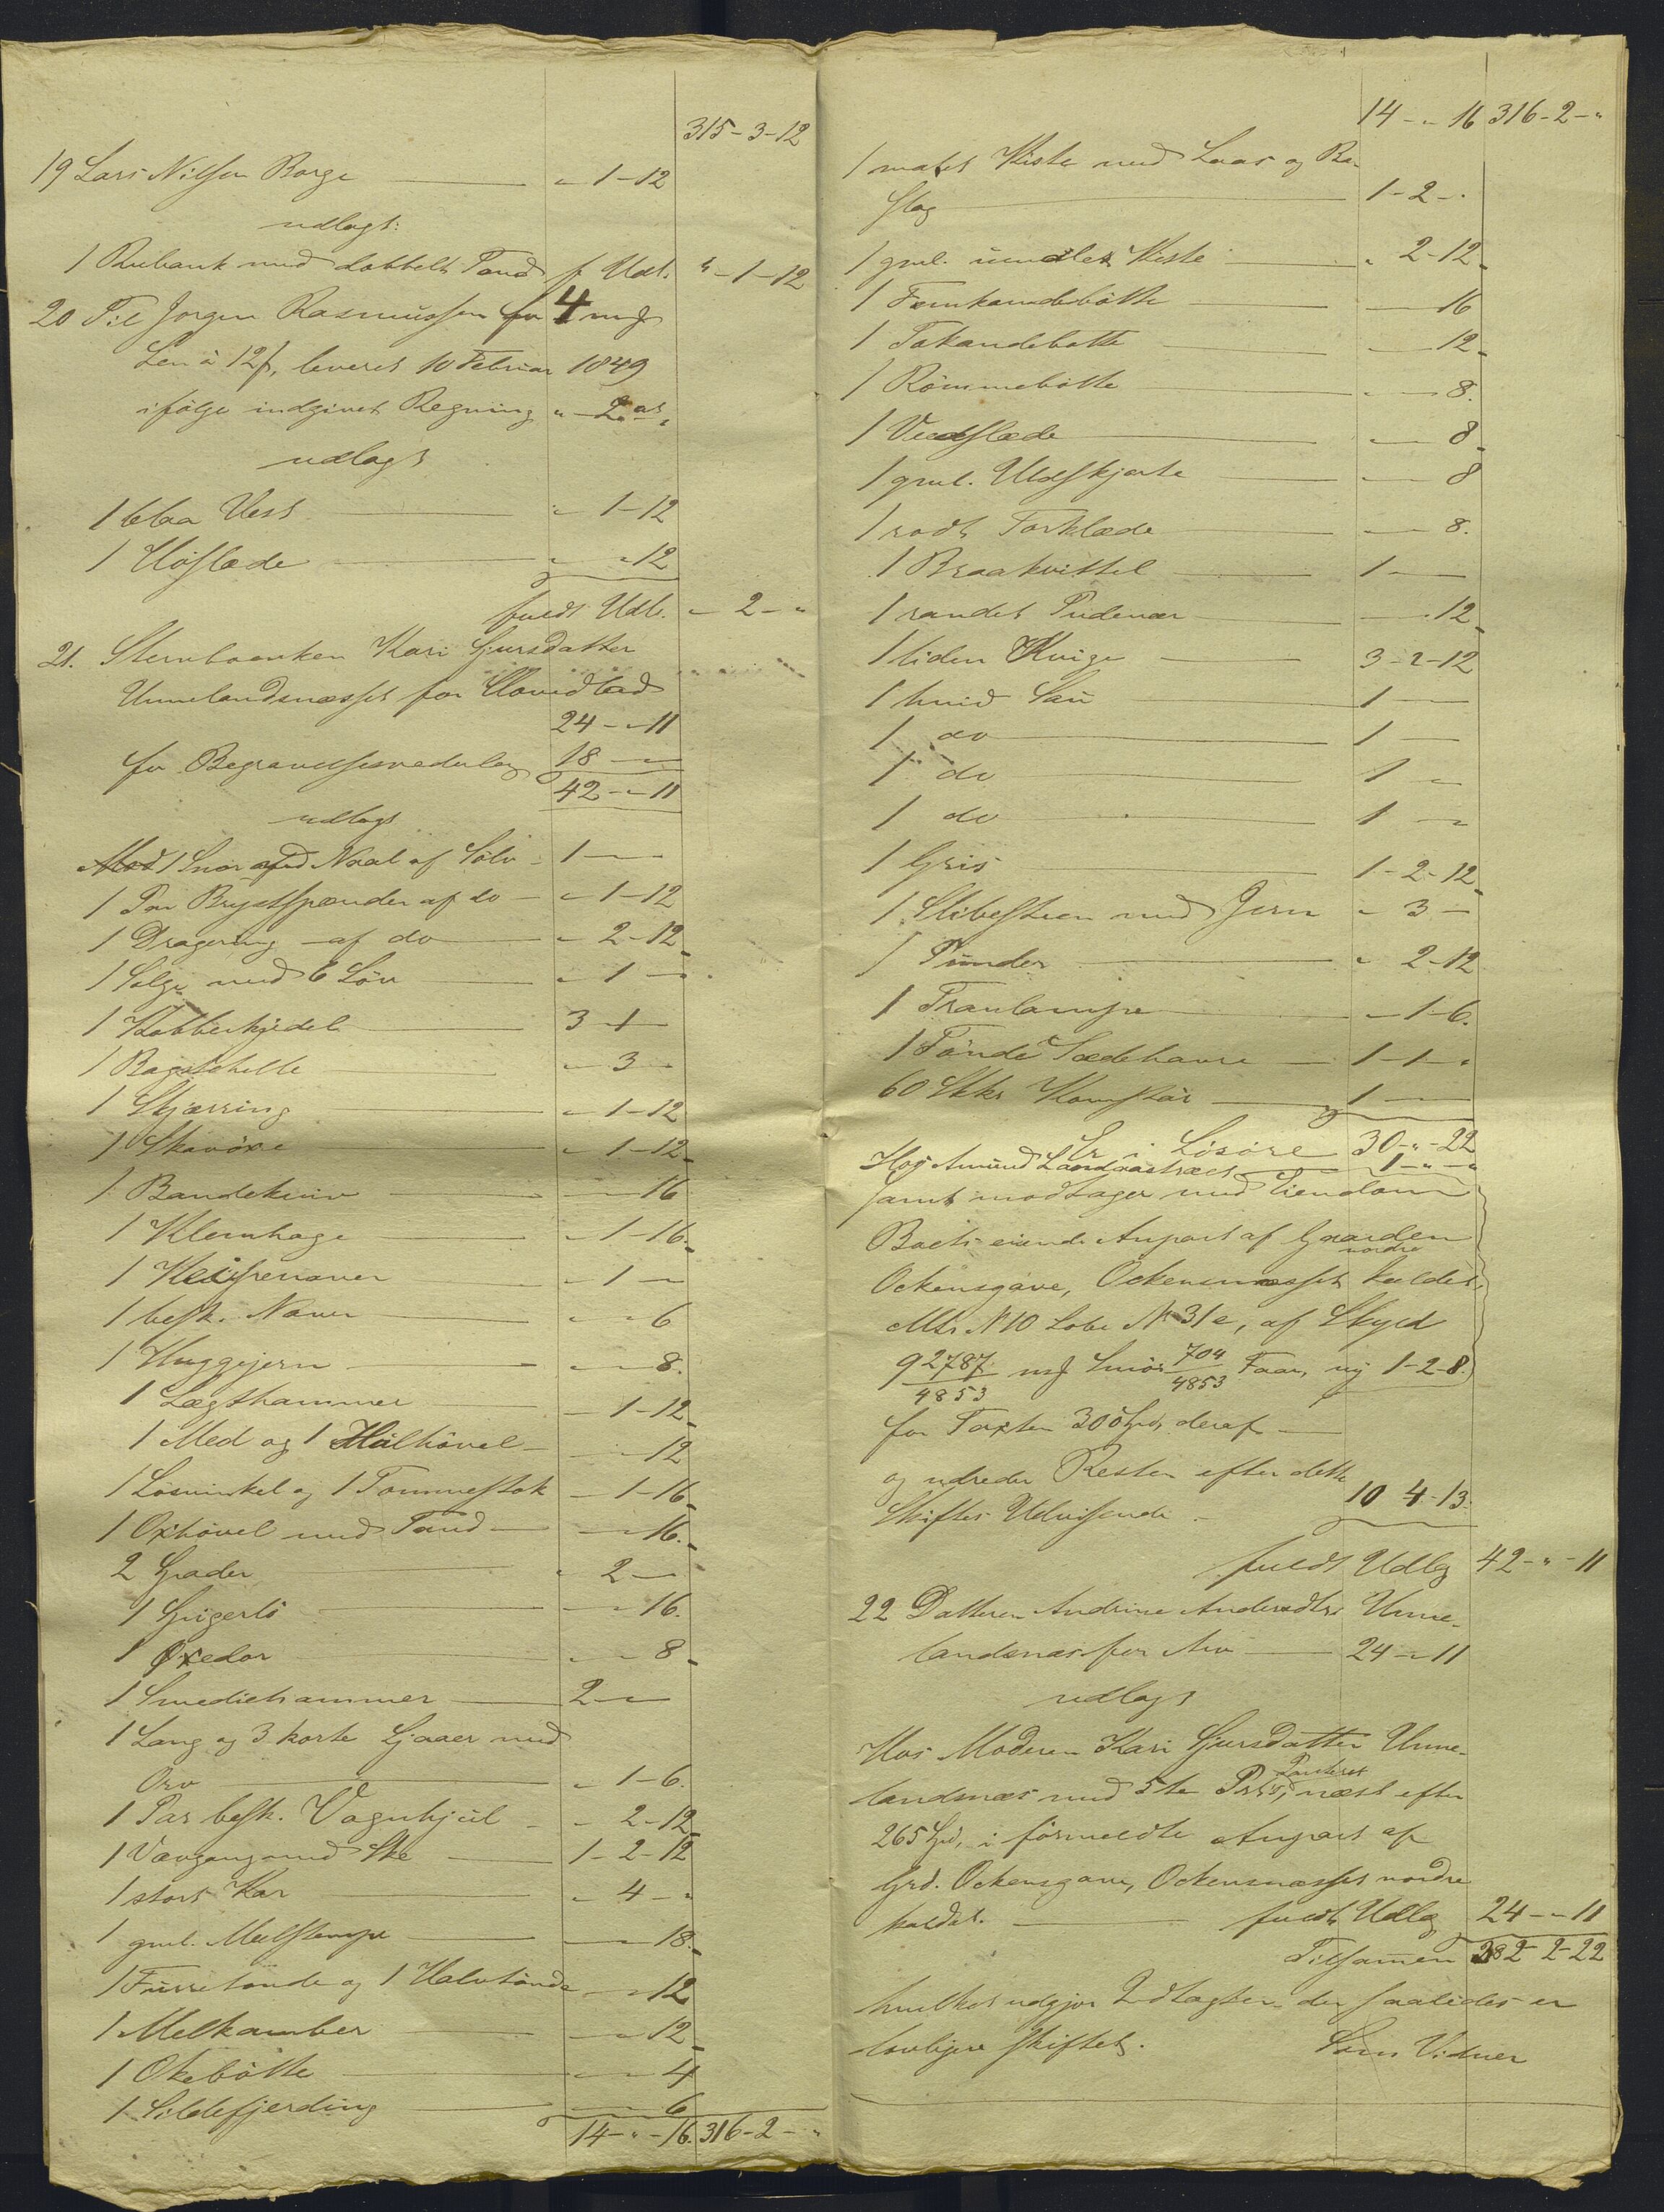 315-3-12
19 Lars Nilsen Borge " 1-12
udlagt:
1 Rubank med dobbelt Tand f Udl. "-1-12
20 Til Jørgen Rasmussen for 4 mß
Lin à 12ß, leveret 10 Februar 1849
ifølge indgivet Regning "-2-"
udlagt
1 blaa Vest "-1-12
1 Høslæde "-"-12
fuldt Udl. "-2-"
21. Stervboenken Kari Gjursdatter
Unnelandsnæsset for Hovedlod
24-"-11
for Begravelsesvederlag 18-"-"
42-"-11
udlagt
1 Snor med Naal af Sølv 1-"-"
1 Par Brystspænder af do "-1-12
1 Dragering af do "-2-12
1 Sølge med 6 Løv "-1-"
1 Kobberkjedel 3-1-"
1 Bagstehelle "-3-"
1 Skjærring "-1-12
1 Skarøxe "-1-12
1 Bandekniv "-"-16
1 Klemhage "-1-16
1 "-1-"
1 besk. Naver "-"-6
1 Huggejern "-"-8
1 Lægthammer "-1-12
1 Med og 1 Hulhøvel "-"-12
1 Løsvinkel og 1 Tommestok "-1-16
1 Oxhøvel med Tand "-"-16
2 Grader "-2-"
1 "-"-16
1 Øxedor "-"-8
1 Smediehammer 2-"-"
1 Lang og 3 korte Ljaaer med
Orv "-1-6
1 Par besk. Vognhjul "-2-12
1 Vævgang med Ske 1-2-12
1 stort Kar "-4-"
1 gml. Meelstampe "-"-18
1 Furretønde og 1 Halvtønde "-"-12
1 Melkamber "-"-12
1 Økebøtte "-"-4
1 Sildefjerding "-"-6
14-"-16. 316-2-"
14-"-16 316-2-"
1 malet Kiste med Laas og Be-
slag 1-2-"
1 gml. umalet Kiste "-2-12
1 Femkandebøtte "-"-16
1 Tokandebøtte "-"-12
1 Rømmebøtte "-"-8
1 Vedslæde "-"-8
1 gml. Uldskjorte "-"-8
1 rødt Forklæde "-"-8
1 Braakvittel 1-"-"
1 randet Pudevær "-"-12
1 liden Kvige 3-2-12
1 hvid Sau 1-"-"
1 do 1-"-"
1 do 1-"-"
1 do 1-"-"
1 Gris 1-2-12
1 Slibesteen med Jern "-3-"
1 Punder "-2-12
1 Tranlampe "-1-6
1 Tønde Sædehavre 1-1-"
60 Stkr 1-"-"
Er i Løsøre 30-"-22
Hos Amund 1-"-"
samt modtager med Eiendom
Boets eiende Anpart af Gaarden
Ockensgave, Ockensnæsset nordre kaldet,
Mtr. N 10 Løbe N 31e, af Skyld
9 2787/4853 mß Smør 704/4853 Faar, ny 1-2-8.
for Taxten 300 Spd, deraf
og udreder Resten efter dette
Skiftes Udvisende 10-4-13
fuldt Udlæg 42-"-11
22 Datteren Andrine Andersdtr. Unne-
landsnæs for Arv 24-"-11
udlagt
Hos Moderen Kari Gjursdatter Unne-
landsnæs med 5te Prts, Panteret næst efter
265 Spd, i formeldte Anpart af
Grd. Ockensgave, Ockensnæsset nordre
kaldet. fuldt Udlæg 24-"-11
Tilsamen 382-2-22
hvilket udgjør Indtægten der saaledes er
lovligere skiftet. Som Vidner